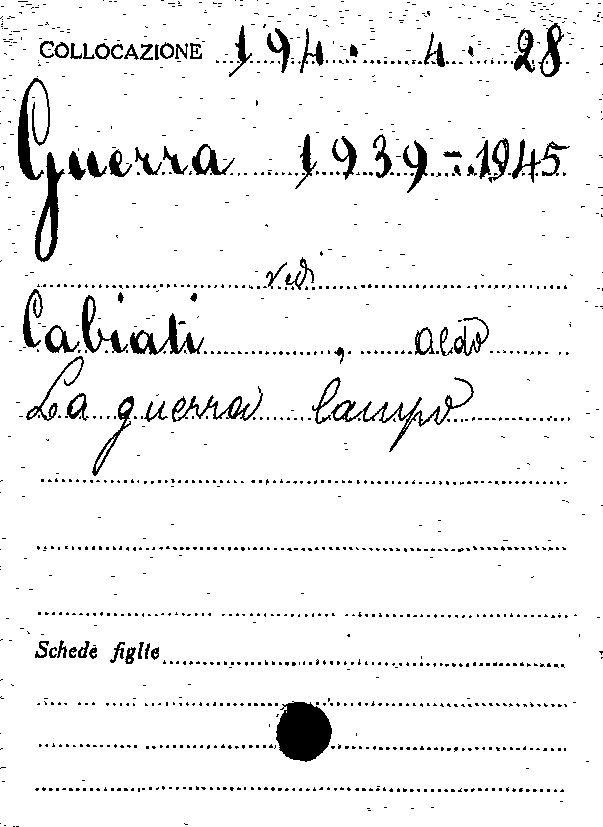 COLLOCAZIONE 194. 4. 28
Guerra 1939-1945
vedi
Cabiati, Aldo
La guerra lampo
Schede figlie